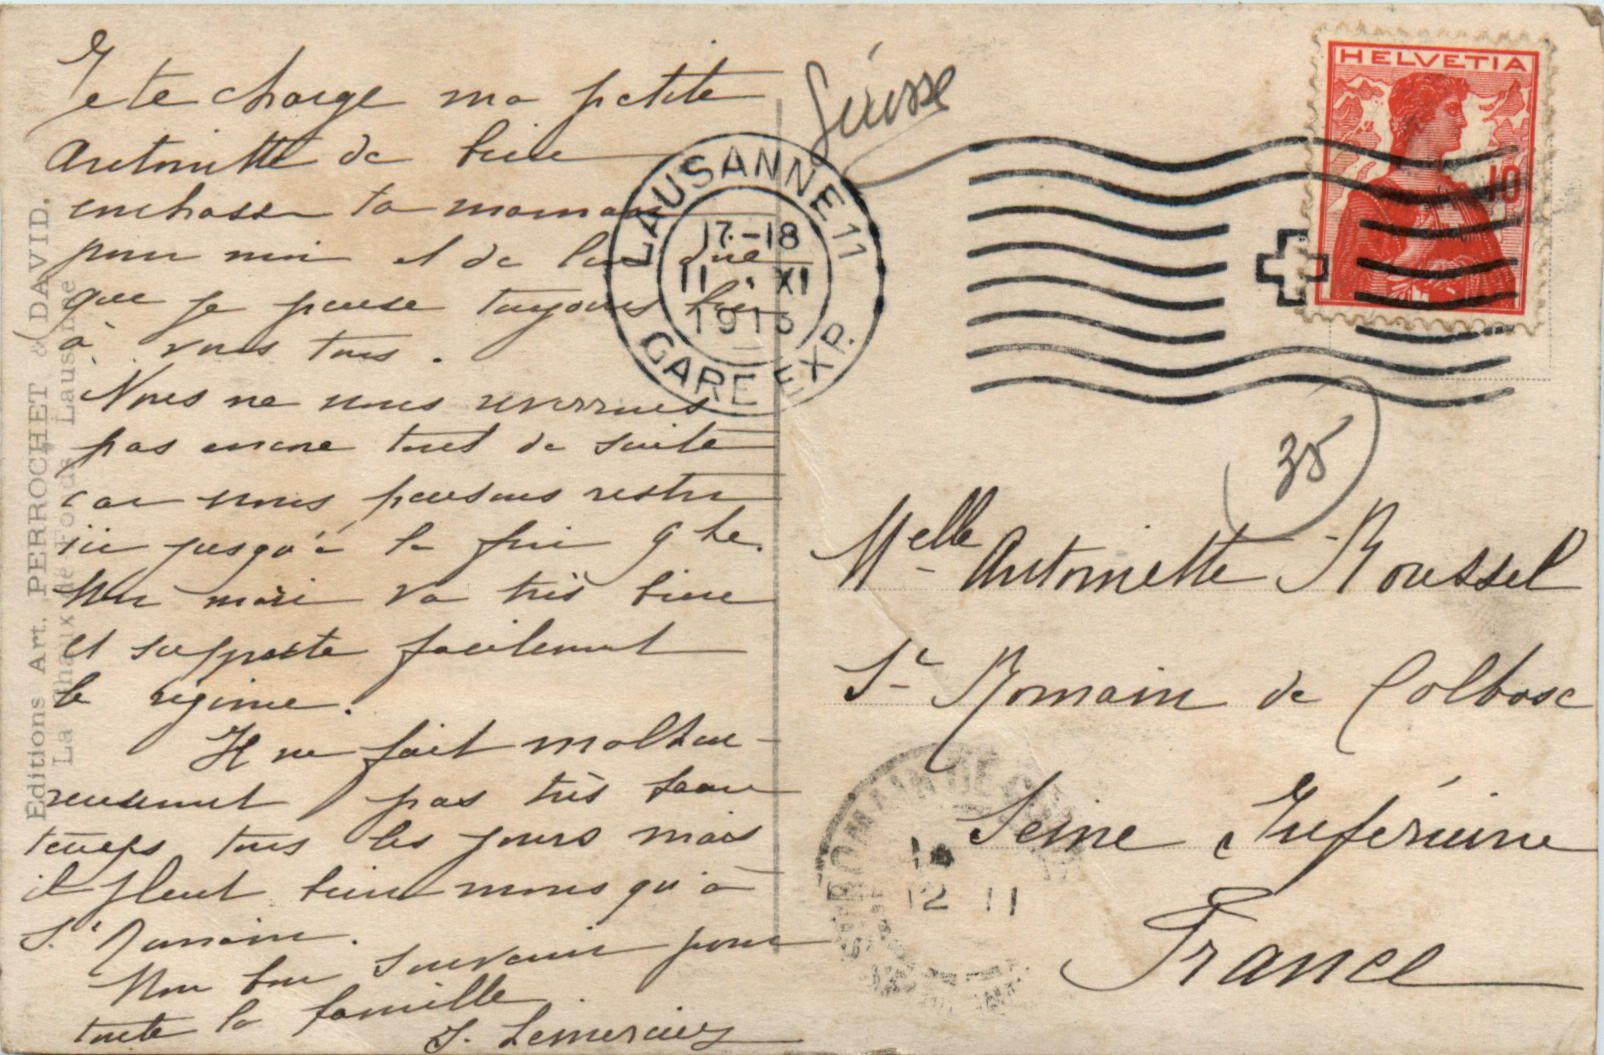 Je te charge ma petite
Antoinette de bien
embrasser ta maman
pour moi et de lui dire
que je pense toujours bien
à vous tous.
Nous ne nous reverrons
pas encore tout de suite
car nous pensons rester
ici jusqu'à la fin 9bre.
Mon mari va très bien
et supporte facilement
le régime.
Il ne fait malheu-
reusement pas très beau
temps tous les jours mais
il pleut bien moins qu'à
St Romain.
Mon bon souvenir pour
toute la famille.
J. Lemercier
Editions Art. PERROCHET & DAVID,
La Chaux-de-Fonds Lausanne
Suisse
LAUSANNE 11
17-18
11 . XI
1913
GARE EXP.
HELVETIA
10
35
Melle Antoinette Roussel
St Romain de Colbosc
Seine Inférieure
France
ROMAIN DE
12 11